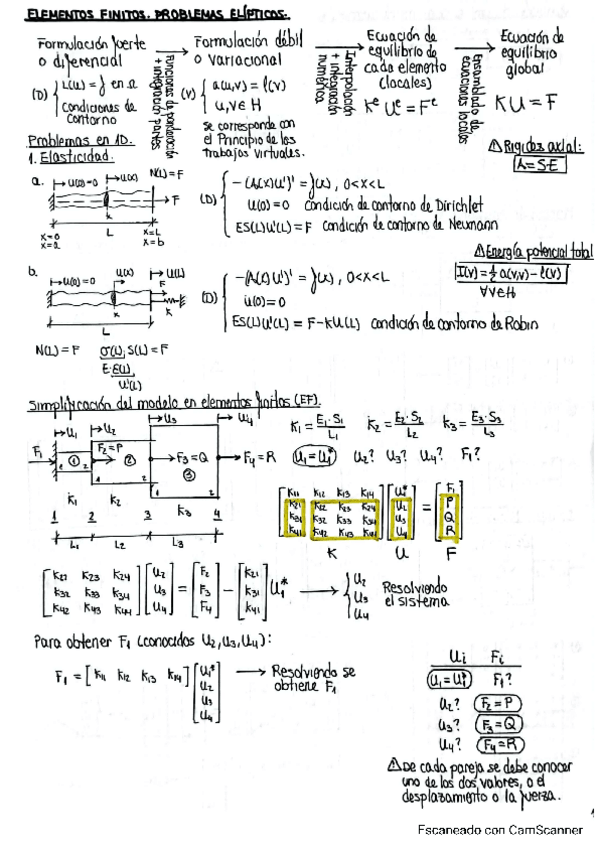 ELEMENTOS FINITOS. PROBLEMAS ELÍPTICOS.
Formulación fuerte o diferencial
(D) { L(u) = f en Ω
Condiciones de contorno
Funciones de ponderación + integración partes
Formulación débil o variacional
(V) { a(u,v) = l(v)
u,v ∈ H
Se corresponde con el Principio de los trabajos virtuales.
Interpolación + integración numérica
Ecuación de equilibrio de cada elemento (locales)
K^e U^e = F^e
Ensamblado de ecuaciones locales
Ecuación de equilibrio global
KU = F
⚠ Rigidez axial:
A = S·E
Problemas en 1D.
1. Elasticidad.
a.
u(0)=0 u(x) N(L)=F
F
x
L
x=0 x=L
x=a x=b
(D) { -(A(x)u')' = f(x), 0<x<L
u(0)=0 condición de contorno de Dirichlet
ES(L)u'(L) = F condición de contorno de Neumann
⚠ Energía potencial total
I(v) = ½ a(v,v) - l(v)
∀v∈H
b.
u(0)=0 u(x) u(L)
F
x
K
L
(D) { -(A(x)u')' = f(x), 0<x<L
u(0)=0
ES(L)u'(L) = F-Ku(L) condición de contorno de Robin
N(L) = F σ(L)·S(L) = F
E·ε(L)
u'(L)
Simplificación del modelo en elementos finitos (EF).
u1 u2 u3 u4
F1 F2=P F3=Q F4=R
1 ① 2 1 ② 2 1 ③ 2
k1 k2 k3
1 2 3 4
L1 L2 L3
k1 = E1·S1/L1 k2 = E2·S2/L2 k3 = E3·S3/L3
u1=u1* u2? u3? u4? F1?
[k11 k12 k13 k14] [u1*] = [F1]
[k21 k22 k23 k24] [u2] [P]
[k31 k32 k33 k34] [u3] [Q]
[k41 k42 k43 k44] [u4] [R]
K U F
[k22 k23 k24] [u2] = [F2] - [k21] u1* → { u2
[k32 k33 k34] [u3] [F3] [k31] u3
[k42 k43 k44] [u4] [F4] [k41] u4
Resolviendo el sistema
Para obtener F1 (conocidos u2,u3,u4):
F1 = [k11 k12 k13 k14] [u1*
u2
u3
u4] → Resolviendo se obtiene F1
ui Fi
u1=u1* F1?
u2? F2=P
u3? F3=Q
u4? F4=R
⚠ De cada pareja se debe conocer
uno de los dos valores, o el
desplazamiento o la fuerza.
1
Escaneado con CamScanner